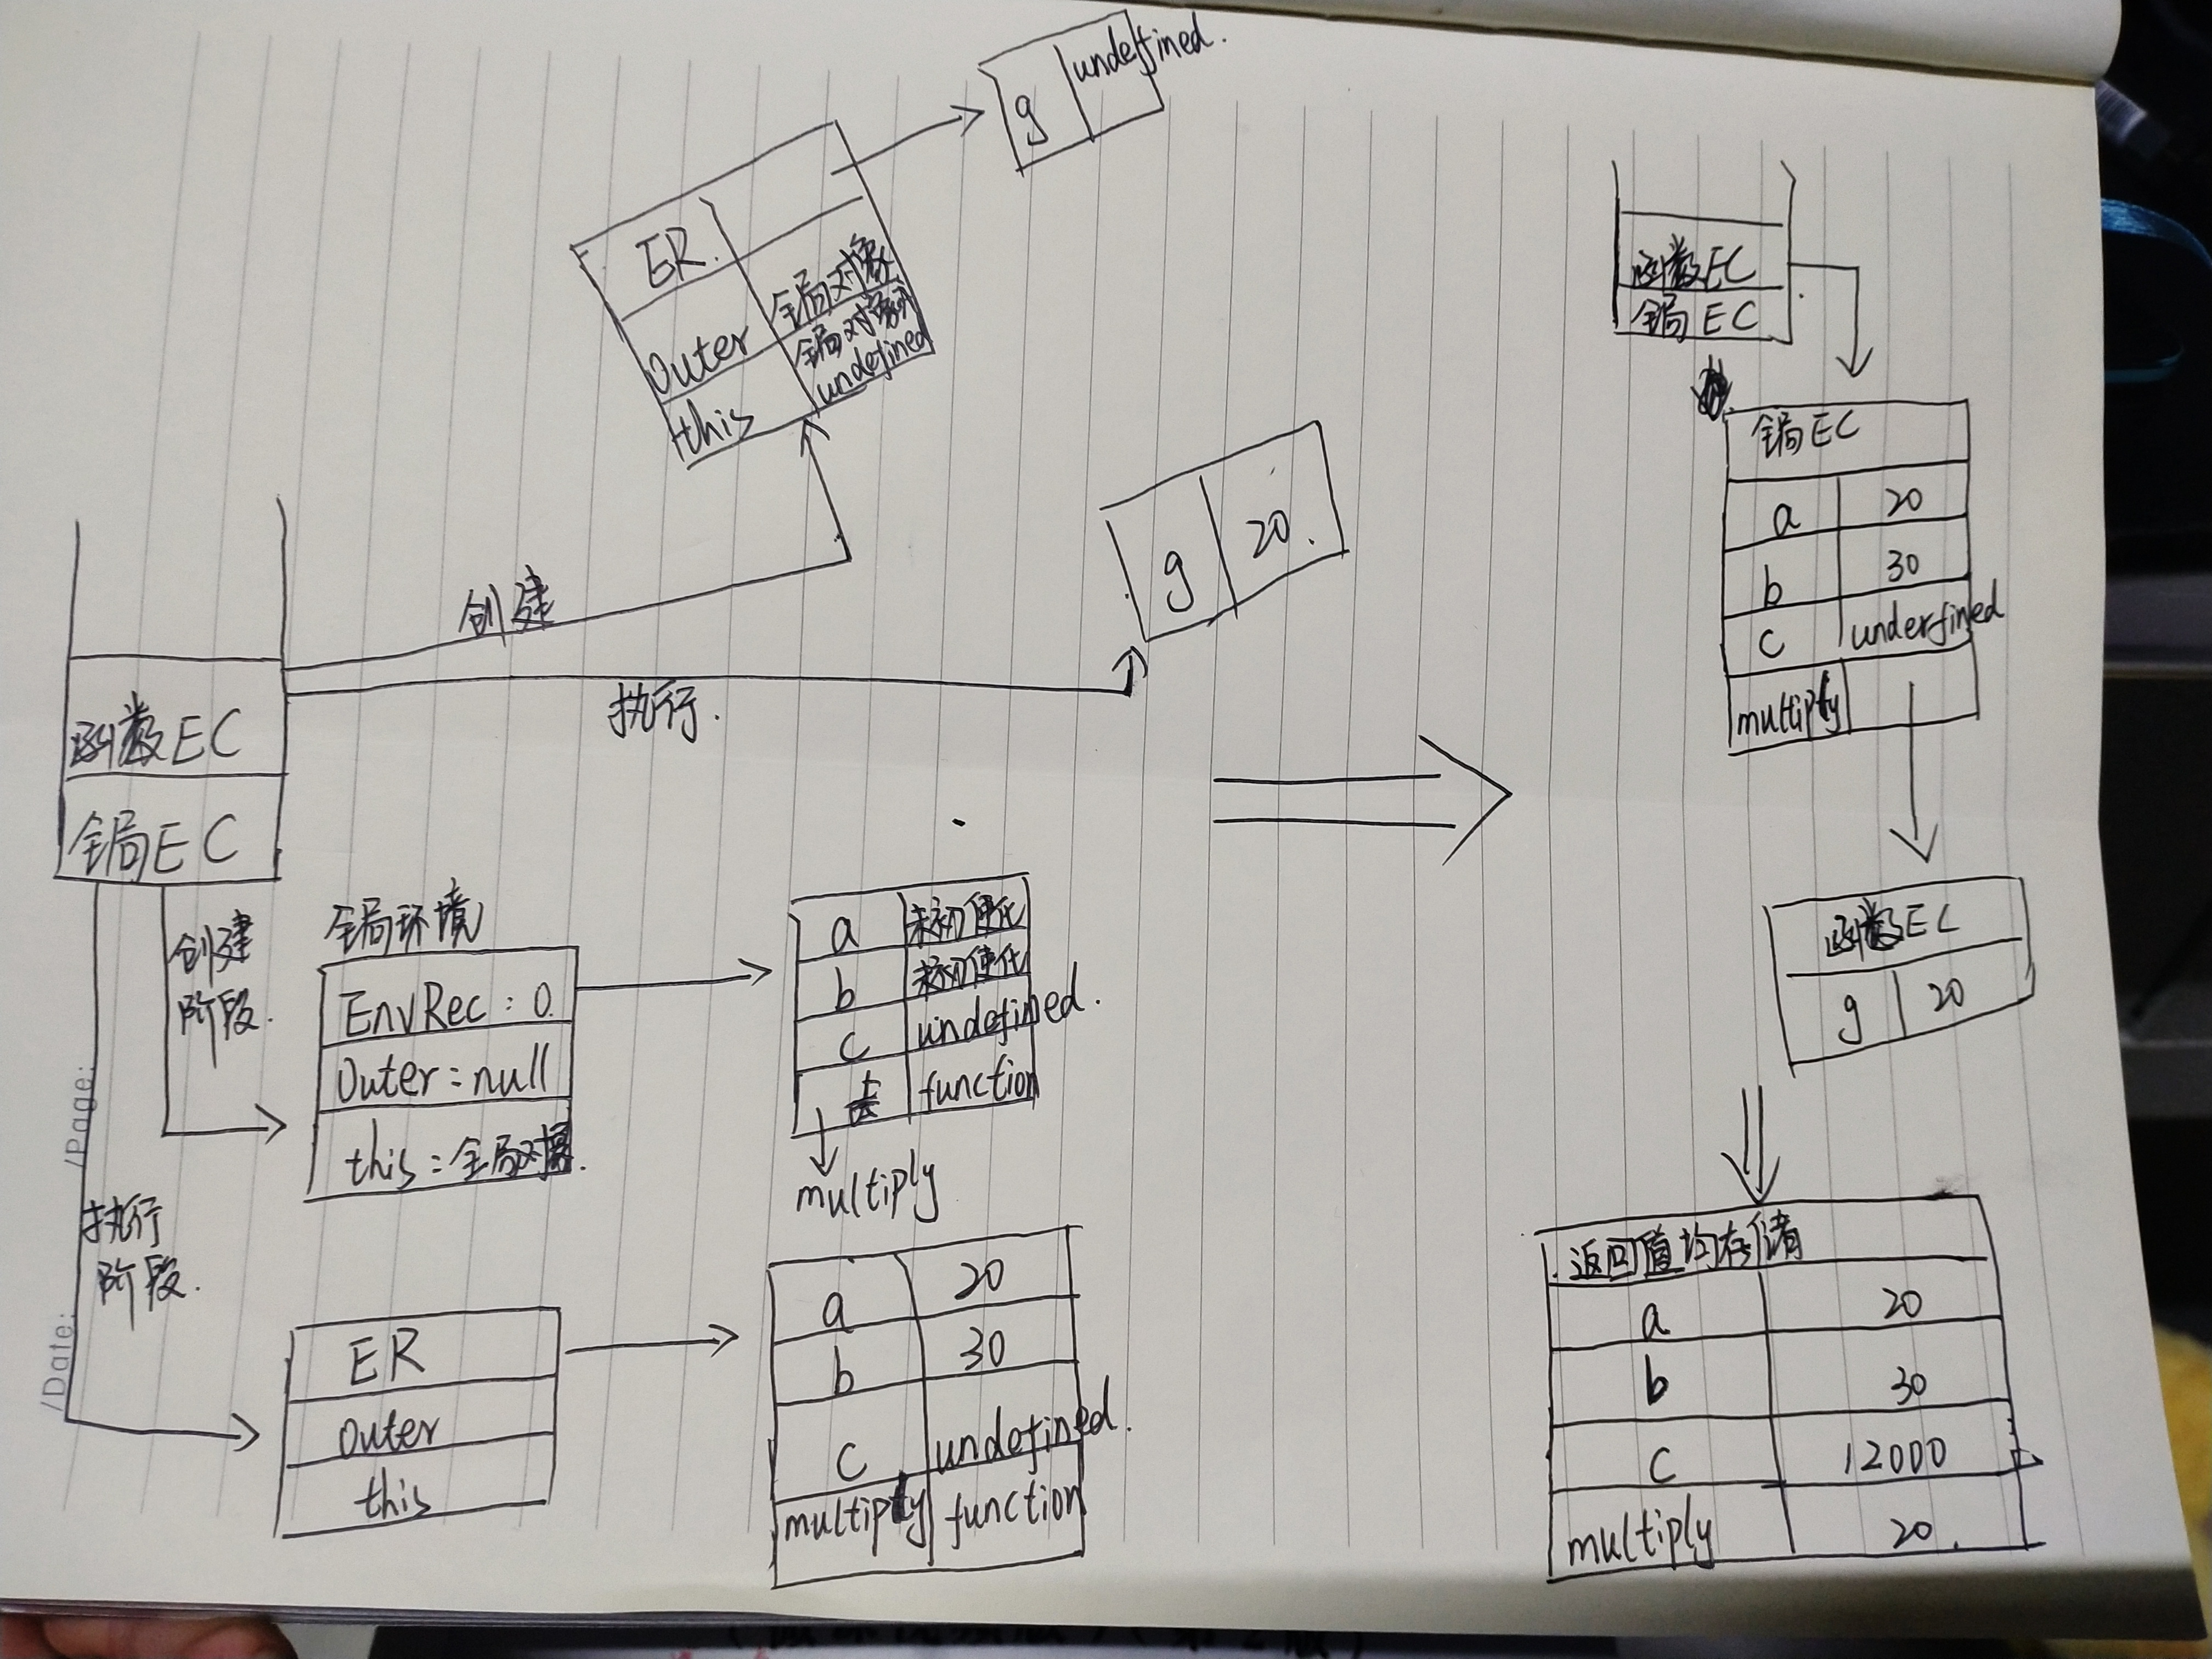 g undefined.
ER.
outer 全局对象
this 全局对象或
undefined
创建
g 20.
执行.
函数EC
全局EC
创建
阶段.
执行
阶段.
全局环境
EnvRec: 0.
Outer=null
this=全局对象.
a 未初使化
b 未初使化
c undefined.
function
multiply
ER
outer
this
a 20
b 30
c undefined.
multiply function
函数EC
全局EC
全局EC
a 20
b 30
c underfined
multiply
函数EC
g 20
返回值均存储
a 20
b 30
c 12000
multiply 20.
/Page:
/Date: